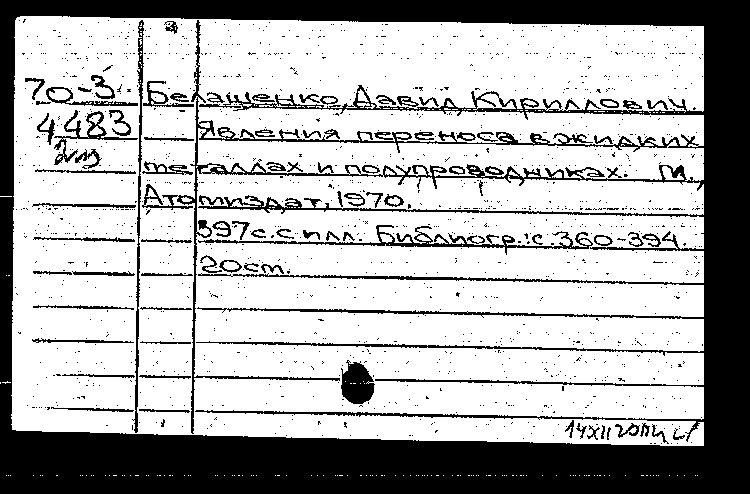 70-3 Белащенко, Давид Кириллович.
4483 Явления переноса в жидких
металлах и полупроводниках. М.,
Атомиздат, 1970.
397с. с илл. Библиогр.: с. 360-394.
20см.